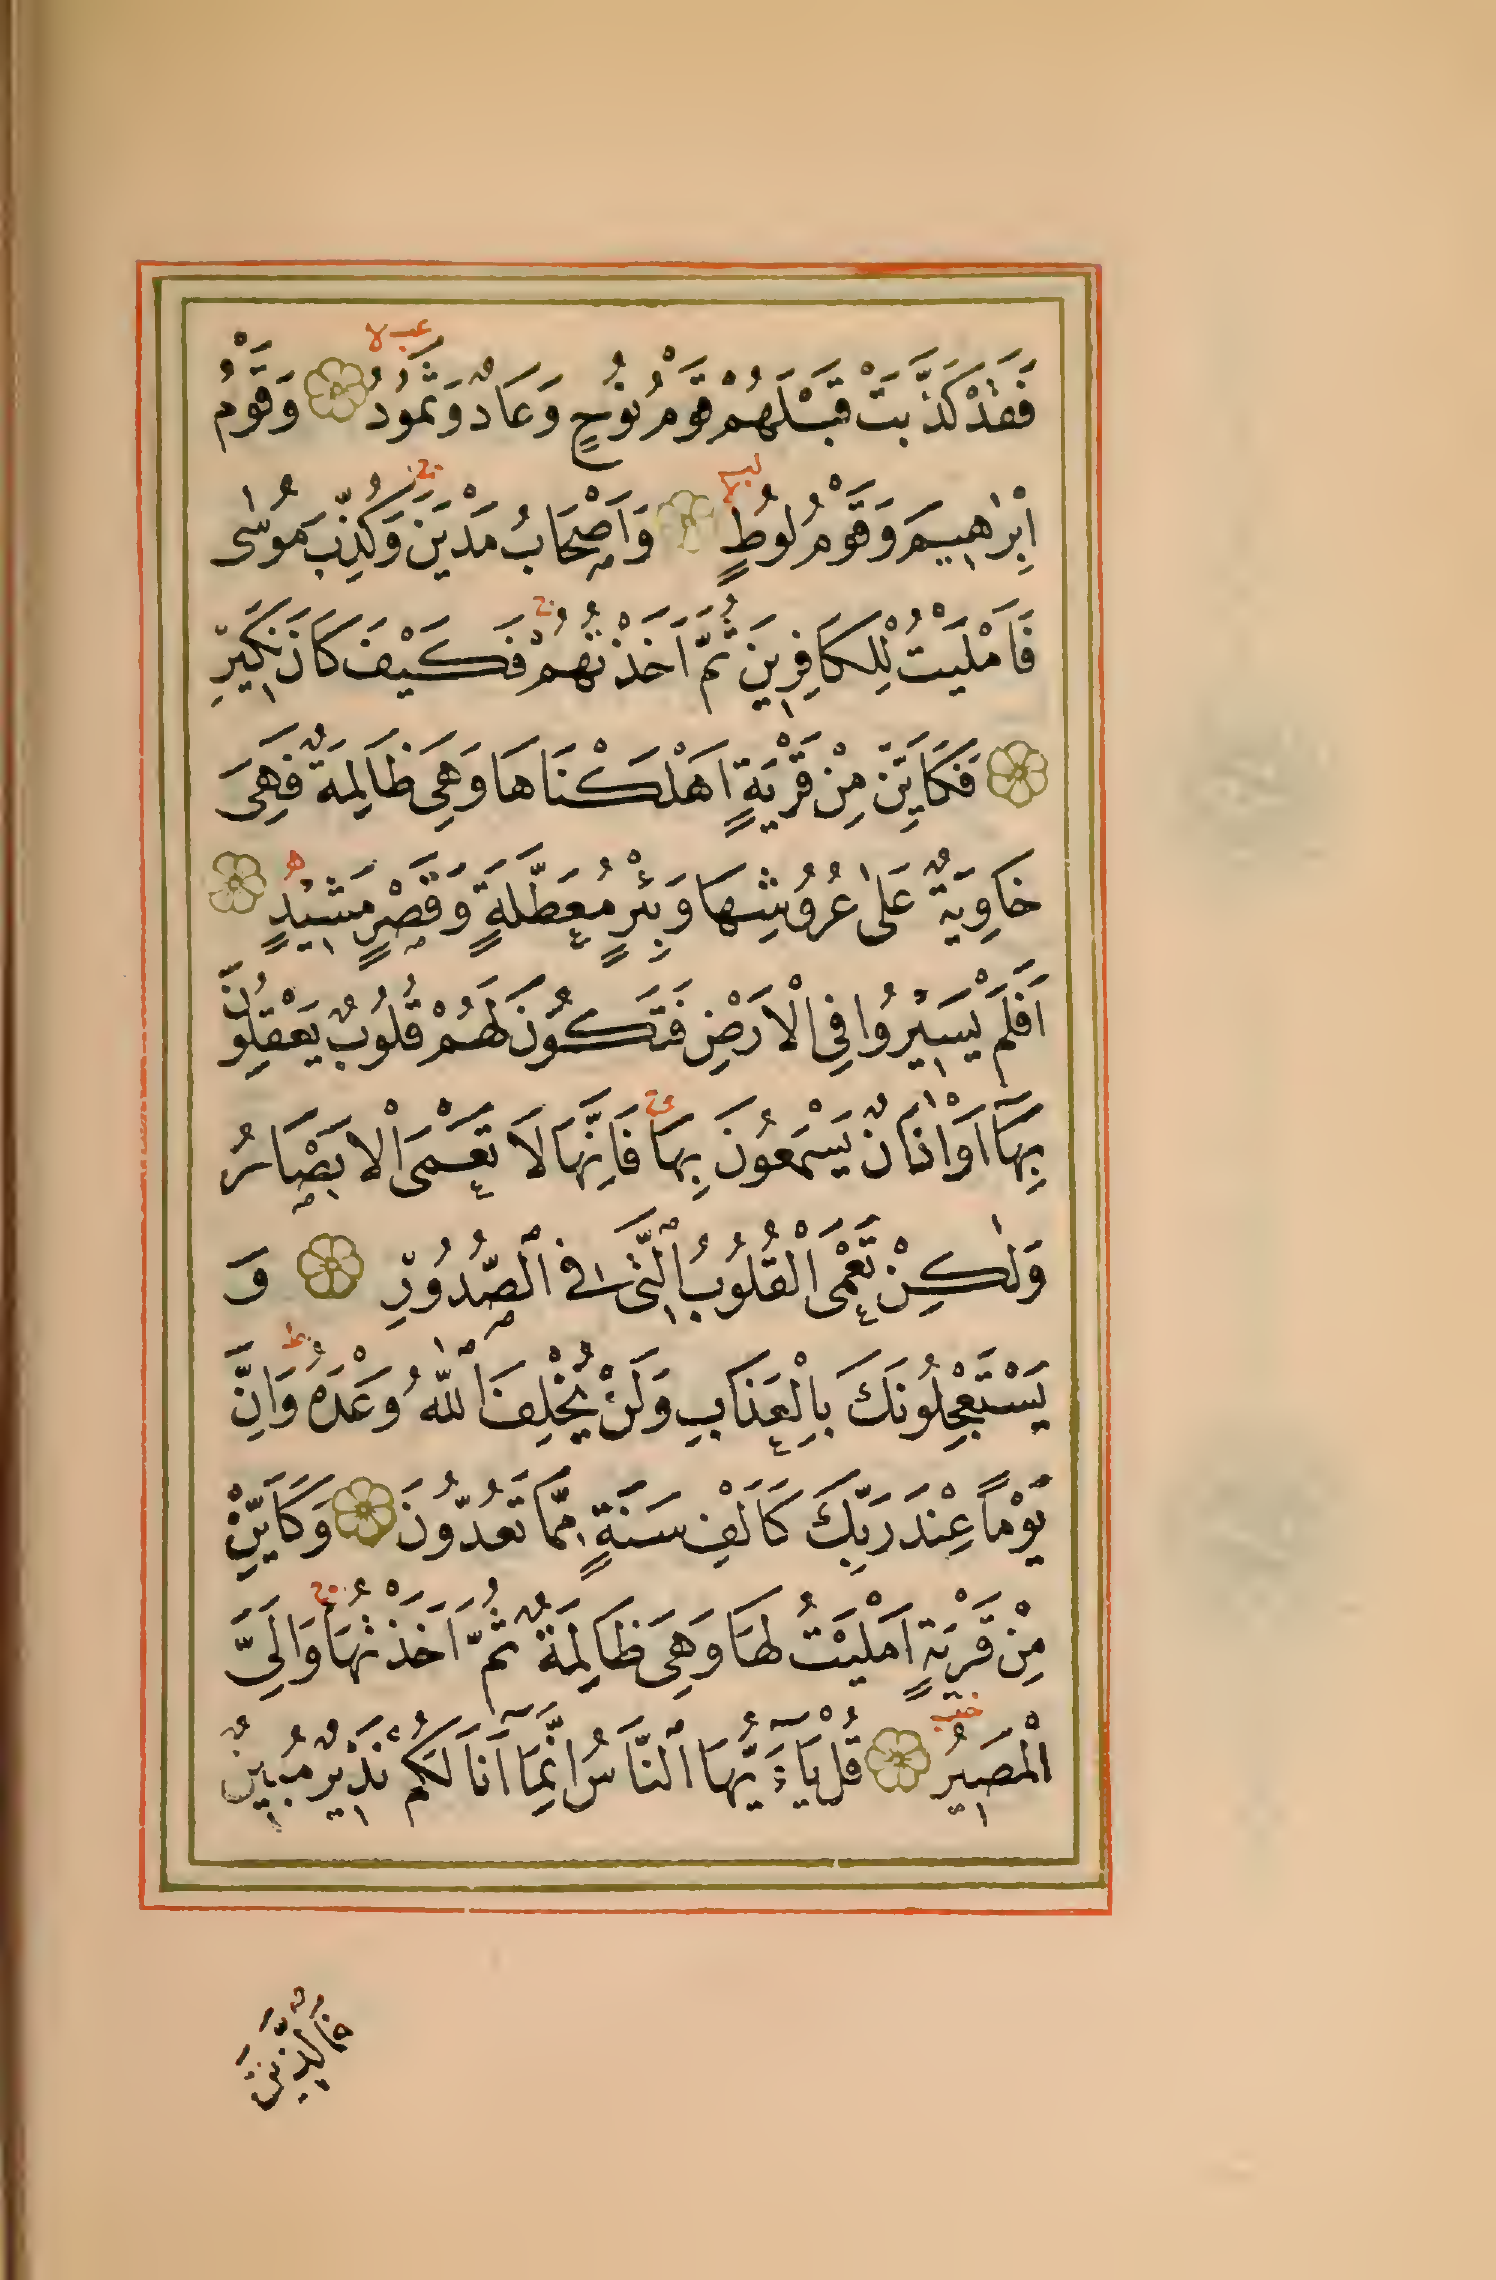 فَقَدْ كَذَّبَتْ قَبْلَهُمْ قَوْمُ نُوحٍ وَعَادٌ وَثَمُودُ وَقَوْمُ
اِبْرٰهِيمَ وَقَوْمُ لُوطٍ وَاَصْحَابُ مَدْيَنَ وَكُذِّبَ مُوسٰى
فَاَمْلَيْتُ لِلْكَافِرِينَ ثُمَّ اَخَذْتُهُمْ فَكَيْفَ كَانَ نَكِيرِ
فَكَاَيِّنْ مِنْ قَرْيَةٍ اَهْلَكْنَاهَا وَهِيَ ظَالِمَةٌ فَهِيَ
خَاوِيَةٌ عَلٰى عُرُوشِهَا وَبِئْرٍ مُعَطَّلَةٍ وَقَصْرٍ مَشِيدٍ
اَفَلَمْ يَسِيرُوا فِي الْاَرْضِ فَتَكُونَ لَهُمْ قُلُوبٌ يَعْقِلُونَ
بِهَٓا اَوْ اٰذَانٌ يَسْمَعُونَ بِهَا فَاِنَّهَا لَا تَعْمَى الْاَبْصَارُ
وَلٰكِنْ تَعْمَى الْقُلُوبُ ٱلَّتِي فِي ٱلصُّدُورِ وَ
يَسْتَعْجِلُونَكَ بِالْعَذَابِ وَلَنْ يُخْلِفَ ٱللّٰهُ وَعْدَهُ وَاِنَّ
يَوْمًا عِنْدَ رَبِّكَ كَاَلْفِ سَنَةٍ مِمَّا تَعُدُّونَ وَكَاَيِّنْ
مِنْ قَرْيَةٍ اَمْلَيْتُ لَهَا وَهِيَ ظَالِمَةٌ ثُمَّ اَخَذْتُهَا وَاِلَيَّ
الْمَصِيرُ قُلْ يَٓاءَيُّهَا ٱلنَّاسُ اِنَّمَٓا اَنَا لَكُمْ نَذِيرٌ مُبِينٌ
فَالَّذِينَ